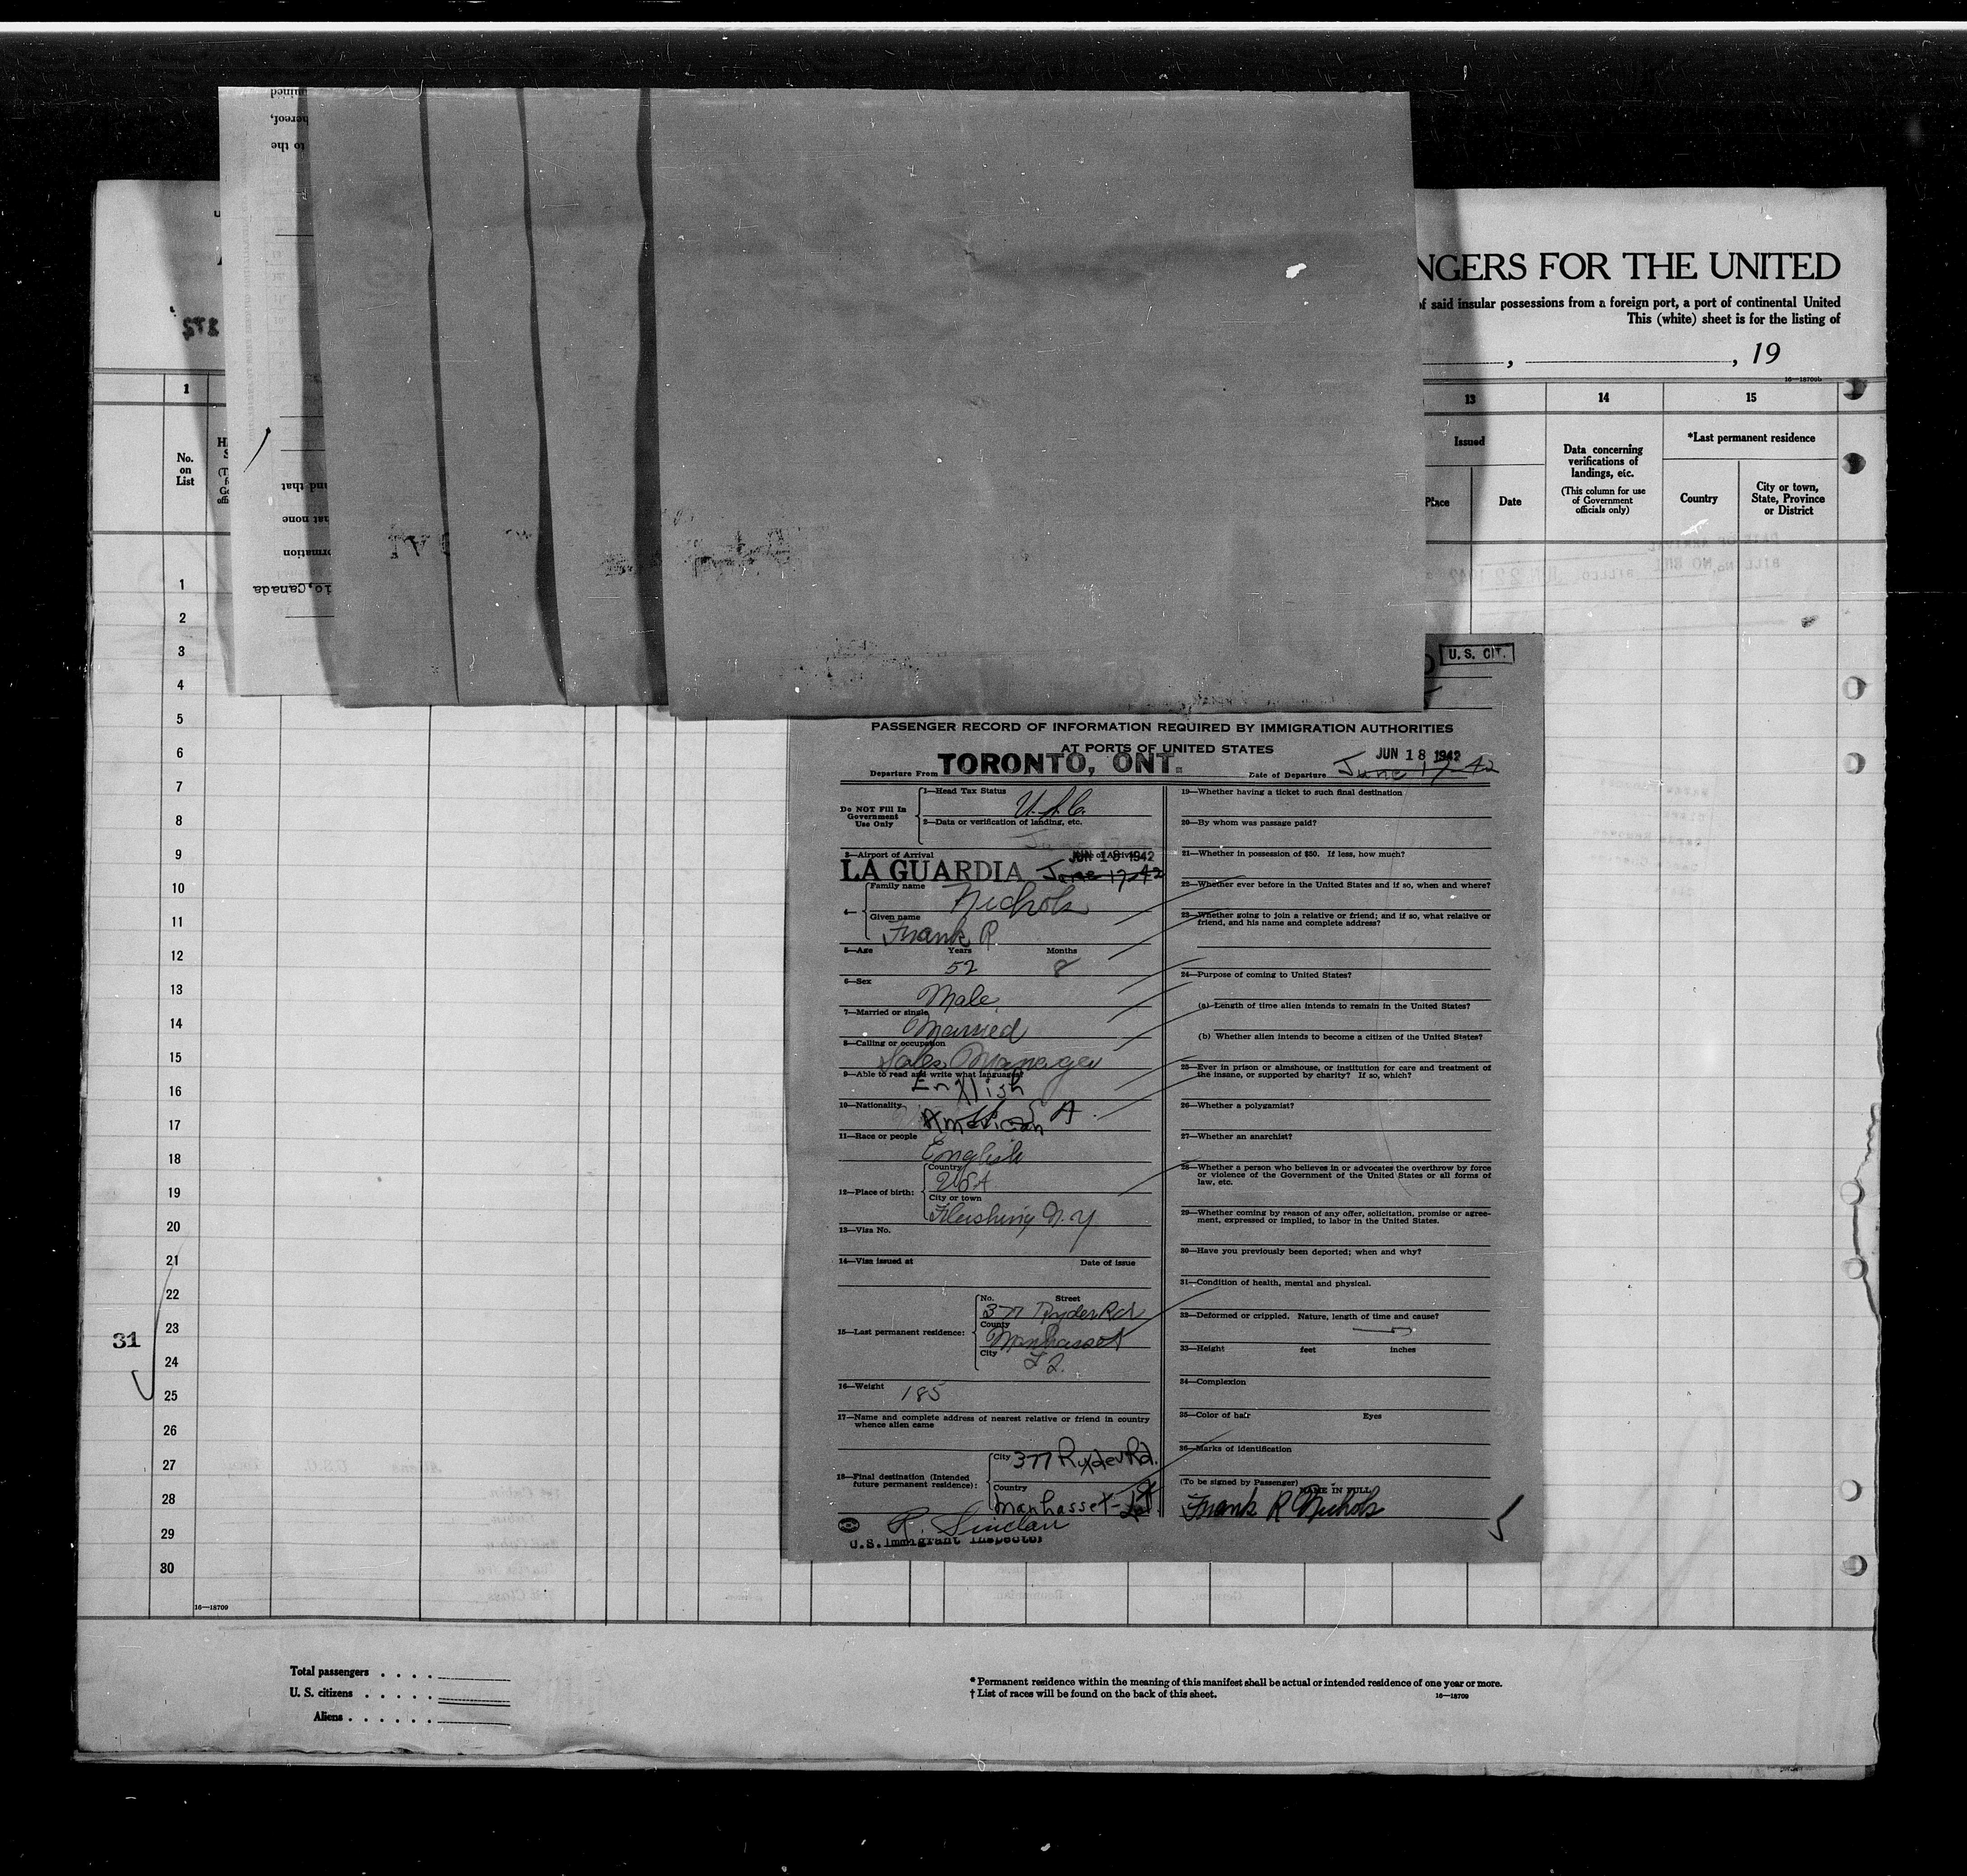 NGERS FOR THE UNITED
of said insular possessions from a foreign port, a port of continental United
This (white) sheet is for the listing of
, , 19
16—18709b
1 13 14 15
No. on List
Issued
Place Date
Data concerning verifications of landings, etc.
(This column for use of Government officials only)
*Last permanent residence
Country
City or town, State, Province or District
to the
hereof,
and that
that none
io, Canada
1
2
3
4
5
6
7
8
9
10
11
12
13
14
15
16
17
18
19
20
21
22
23
31
24
25
26
27
28
29
30
16—18709
U. S. CIT.
PASSENGER RECORD OF INFORMATION REQUIRED BY IMMIGRATION AUTHORITIES
AT PORTS OF UNITED STATES
Departure From TORONTO, ONT. Date of Departure June 17-42
JUN 18 1942
Do NOT Fill In Government Use Only
1—Head Tax Status
U.S.C.
2—Data or verification of landing, etc.
3—Airport of Arrival Date of Arrival
JUN 18 1942
LA GUARDIA June 17-42
4— Family name
Nichols
Given name
Frank R
5—Age Years Months
52 8
6—Sex
Male
7—Married or single
Married
8—Calling or occupation
Sales Manager
9—Able to read and write what language?
English
10—Nationality
American
11—Race or people
English
12—Place of birth: Country
USA
City or town
Flushing N.Y
13—Visa No.
14—Visa issued at Date of issue
15—Last permanent residence: No. Street
377 Ryder Rd
County
Manhasset
City
16—Weight 185
17—Name and complete address of nearest relative or friend in country
whence alien came
18—Final destination (Intended future permanent residence): City 377 Ryder Rd.
Country
Manhasset-
R. Sinclair
U.S. Immigrant Inspector
19—Whether having a ticket to such final destination
20—By whom was passage paid?
21—Whether in possession of $50. If less, how much?
22—Whether ever before in the United States and if so, when and where?
23—Whether going to join a relative or friend; and if so, what relative or
friend, and his name and complete address?
24—Purpose of coming to United States?
(a) Length of time alien intends to remain in the United States?
(b) Whether alien intends to become a citizen of the United States?
25—Ever in prison or almshouse, or institution for care and treatment of
the insane, or supported by charity? If so, which?
26—Whether a polygamist?
27—Whether an anarchist?
28—Whether a person who believes in or advocates the overthrow by force
or violence of the Government of the United States or all forms of
law, etc.
29—Whether coming by reason of any offer, solicitation, promise or agree-
ment, expressed or implied, to labor in the United States.
30—Have you previously been deported; when and why?
31—Condition of health, mental and physical.
32—Deformed or crippled. Nature, length of time and cause?
33—Height feet inches
34—Complexion
35—Color of hair Eyes
36—Marks of identification
(To be signed by Passenger) NAME IN FULL
Frank R Nichols
Total passengers . . . .
U. S. citizens . . . . .
Aliens . . . . . .
* Permanent residence within the meaning of this manifest shall be actual or intended residence of one year or more.
† List of races will be found on the back of this sheet.
16—18709